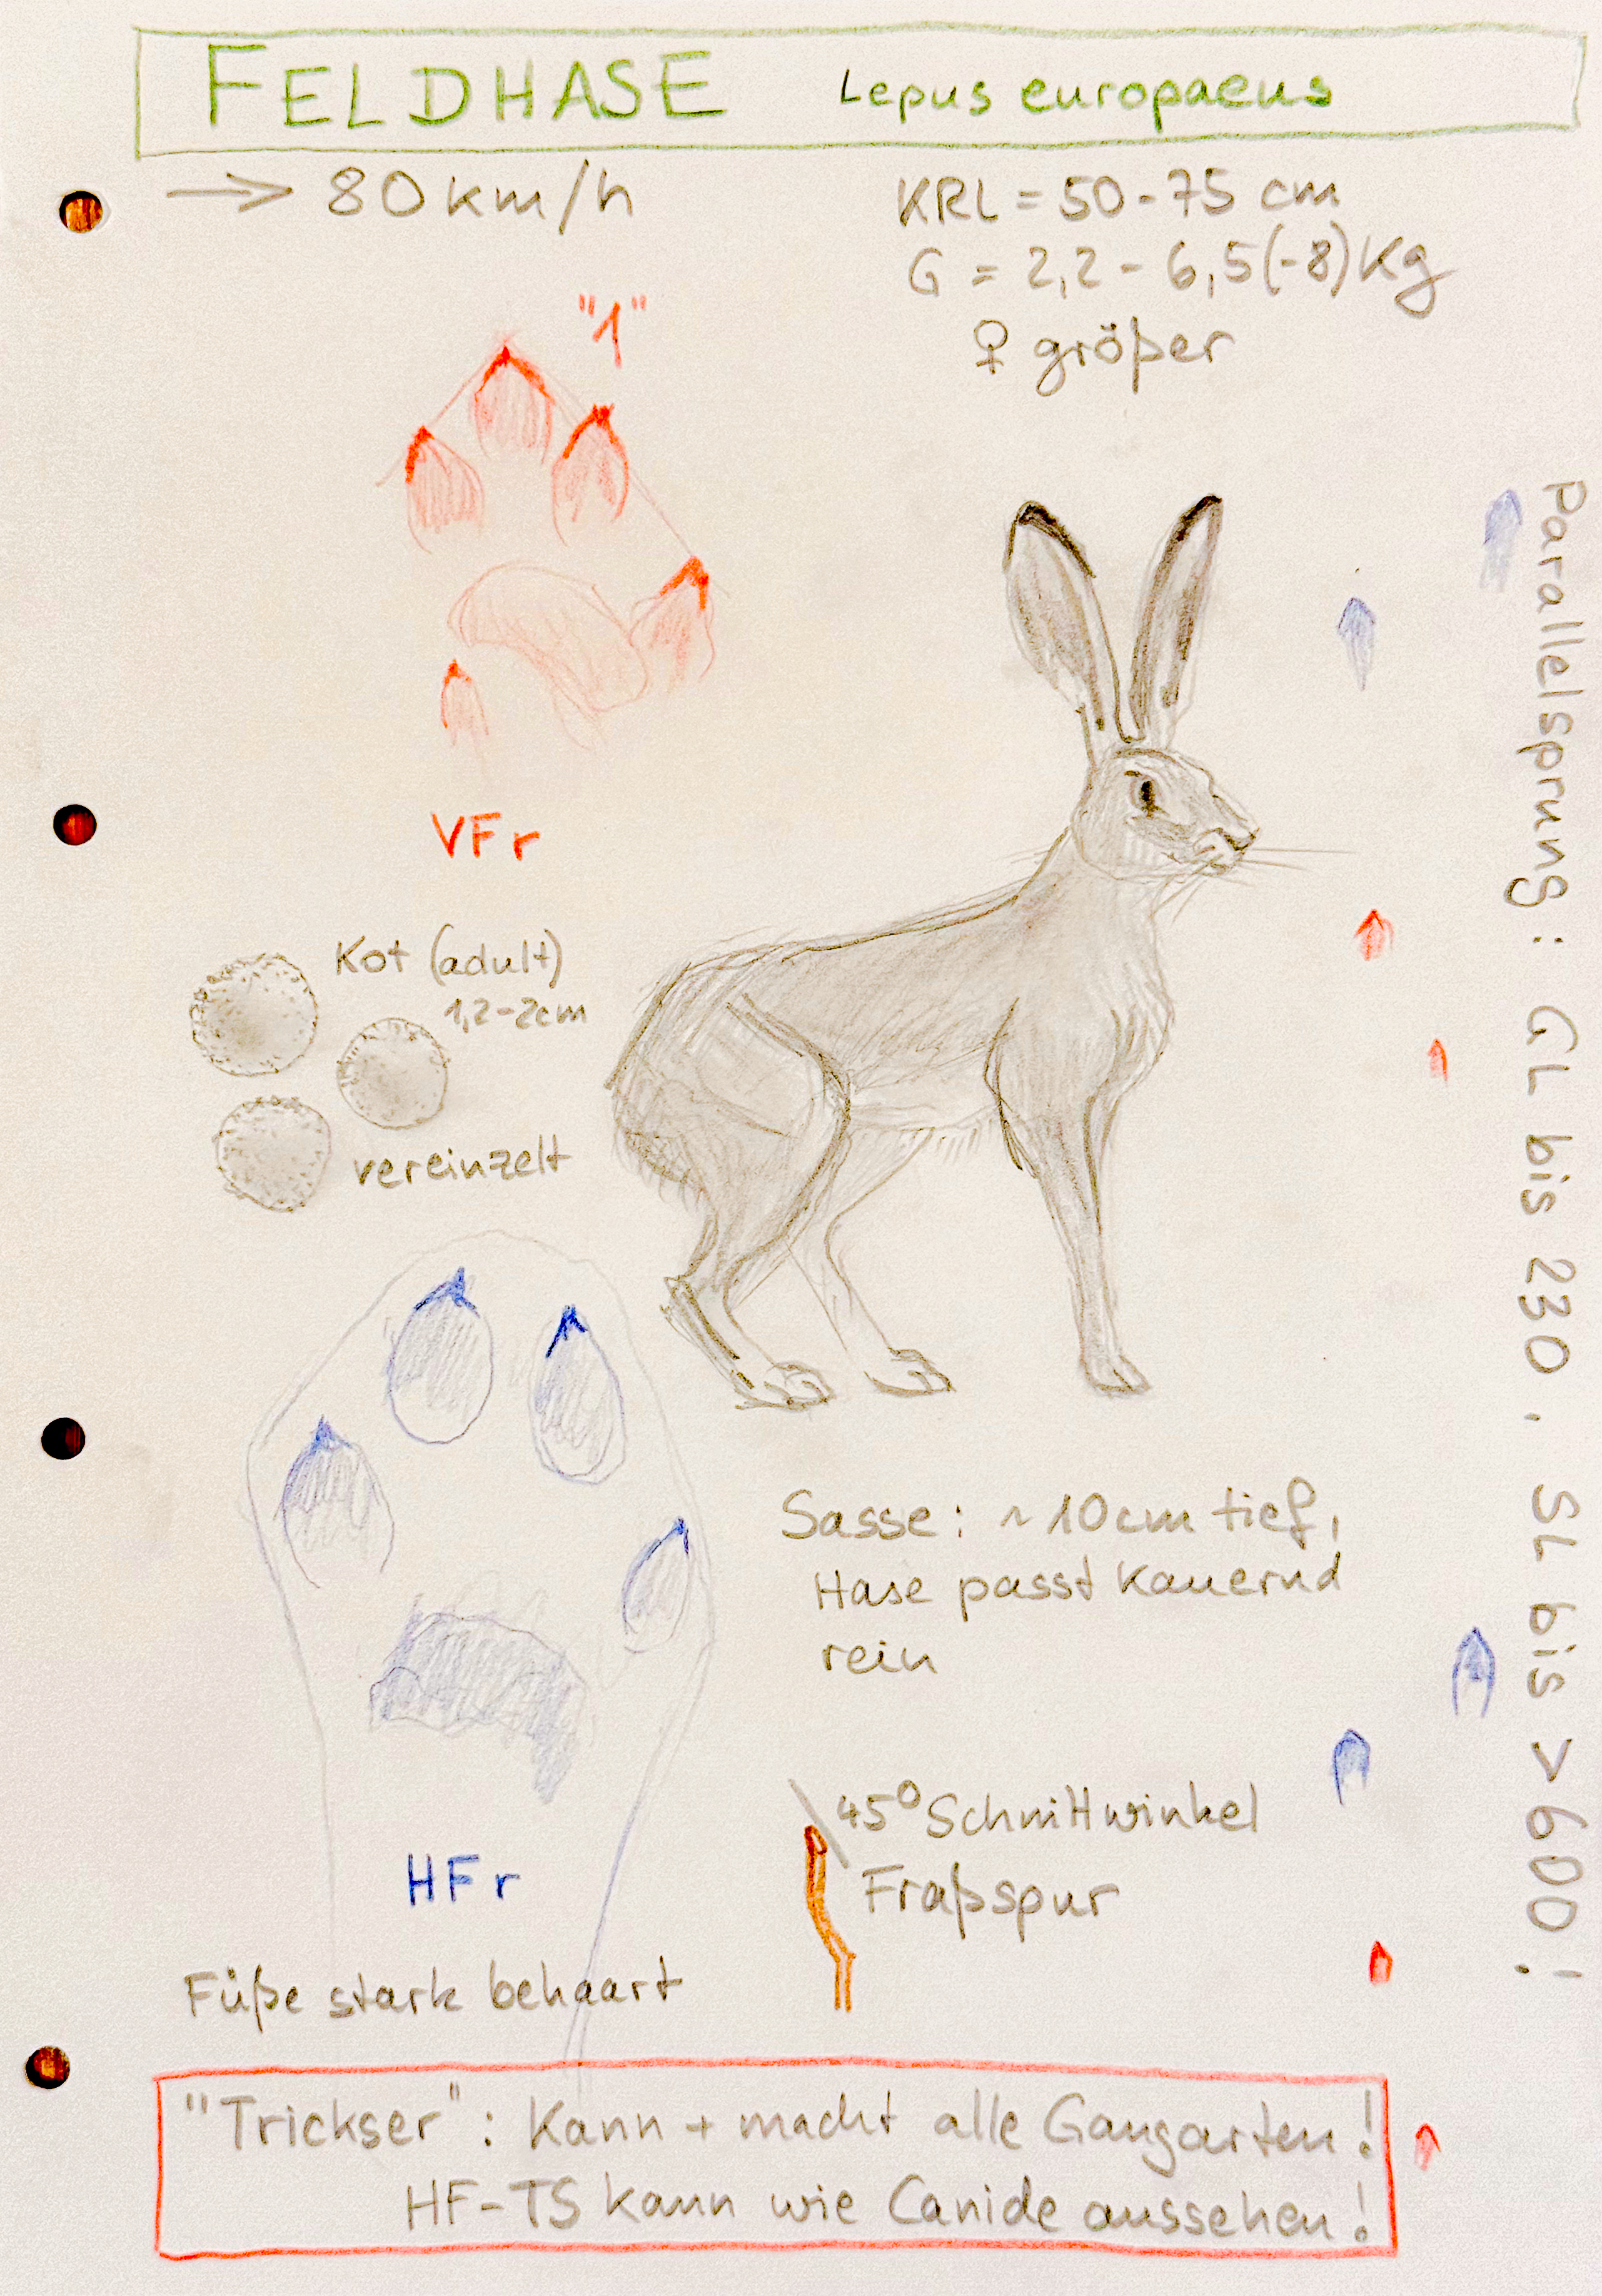 FELDHASE Lepus europaeus
→ 80 km/h
KRL = 50-75 cm
G = 2,2 - 6,5 (-8) Kg
♀ größer
"1"
VFr
Kot (adult)
1,2-2cm
vereinzelt
Parallelsprung: GL bis 230, SL bis > 600!
Sasse: ~10cm tief,
Hase passt kauernd
rein
45° Schnittwinkel
Fraßspur
HFr
Füße stark behaart
"Trickser": Kann + macht alle Gangarten!
HF-TS kann wie Canide aussehen!